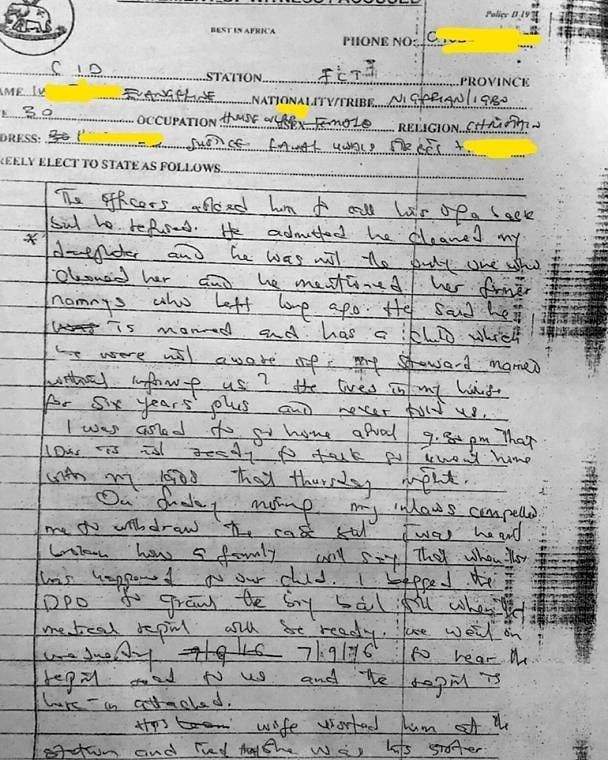 STATEMENT OF WITNESS/ACCUSED
Police D 19
BEST IN AFRICA
PHONE NO:
CID STATION FCT PROVINCE
NAME EVANGELINE NATIONALITY/TRIBE NIGERIAN/
30 OCCUPATION House wife RELIGION CHRISTIAN
DRESS: JUSTICE STREET
EELY ELECT TO STATE AS FOLLOWS
The officers asked him to call his back
but he refused. He admitted he cleaned my
* daughter and he was not the only one who
cleaned her and he mentioned her former
nannys who left long ago. He said he
is married and has a child which
we were not aware of. my Steward married
without informing us? He lives in my house
for six years plus and never told us.
I was asked to go home about 9.30pm That
is not ready to talk so I went home
with my kids that thursday night.
On friday morning my inlaws compelled
me to withdraw the case but I was heart
broken how a family will say that when this
has happened to our child. I begged the
DPO to grant the boy bail till when the
medical report will be ready. we went on
wednesday 7/9/16 to hear the
report read to us and the report is
here-in attached.
His wife visited him at the
station and lied that she was his sister